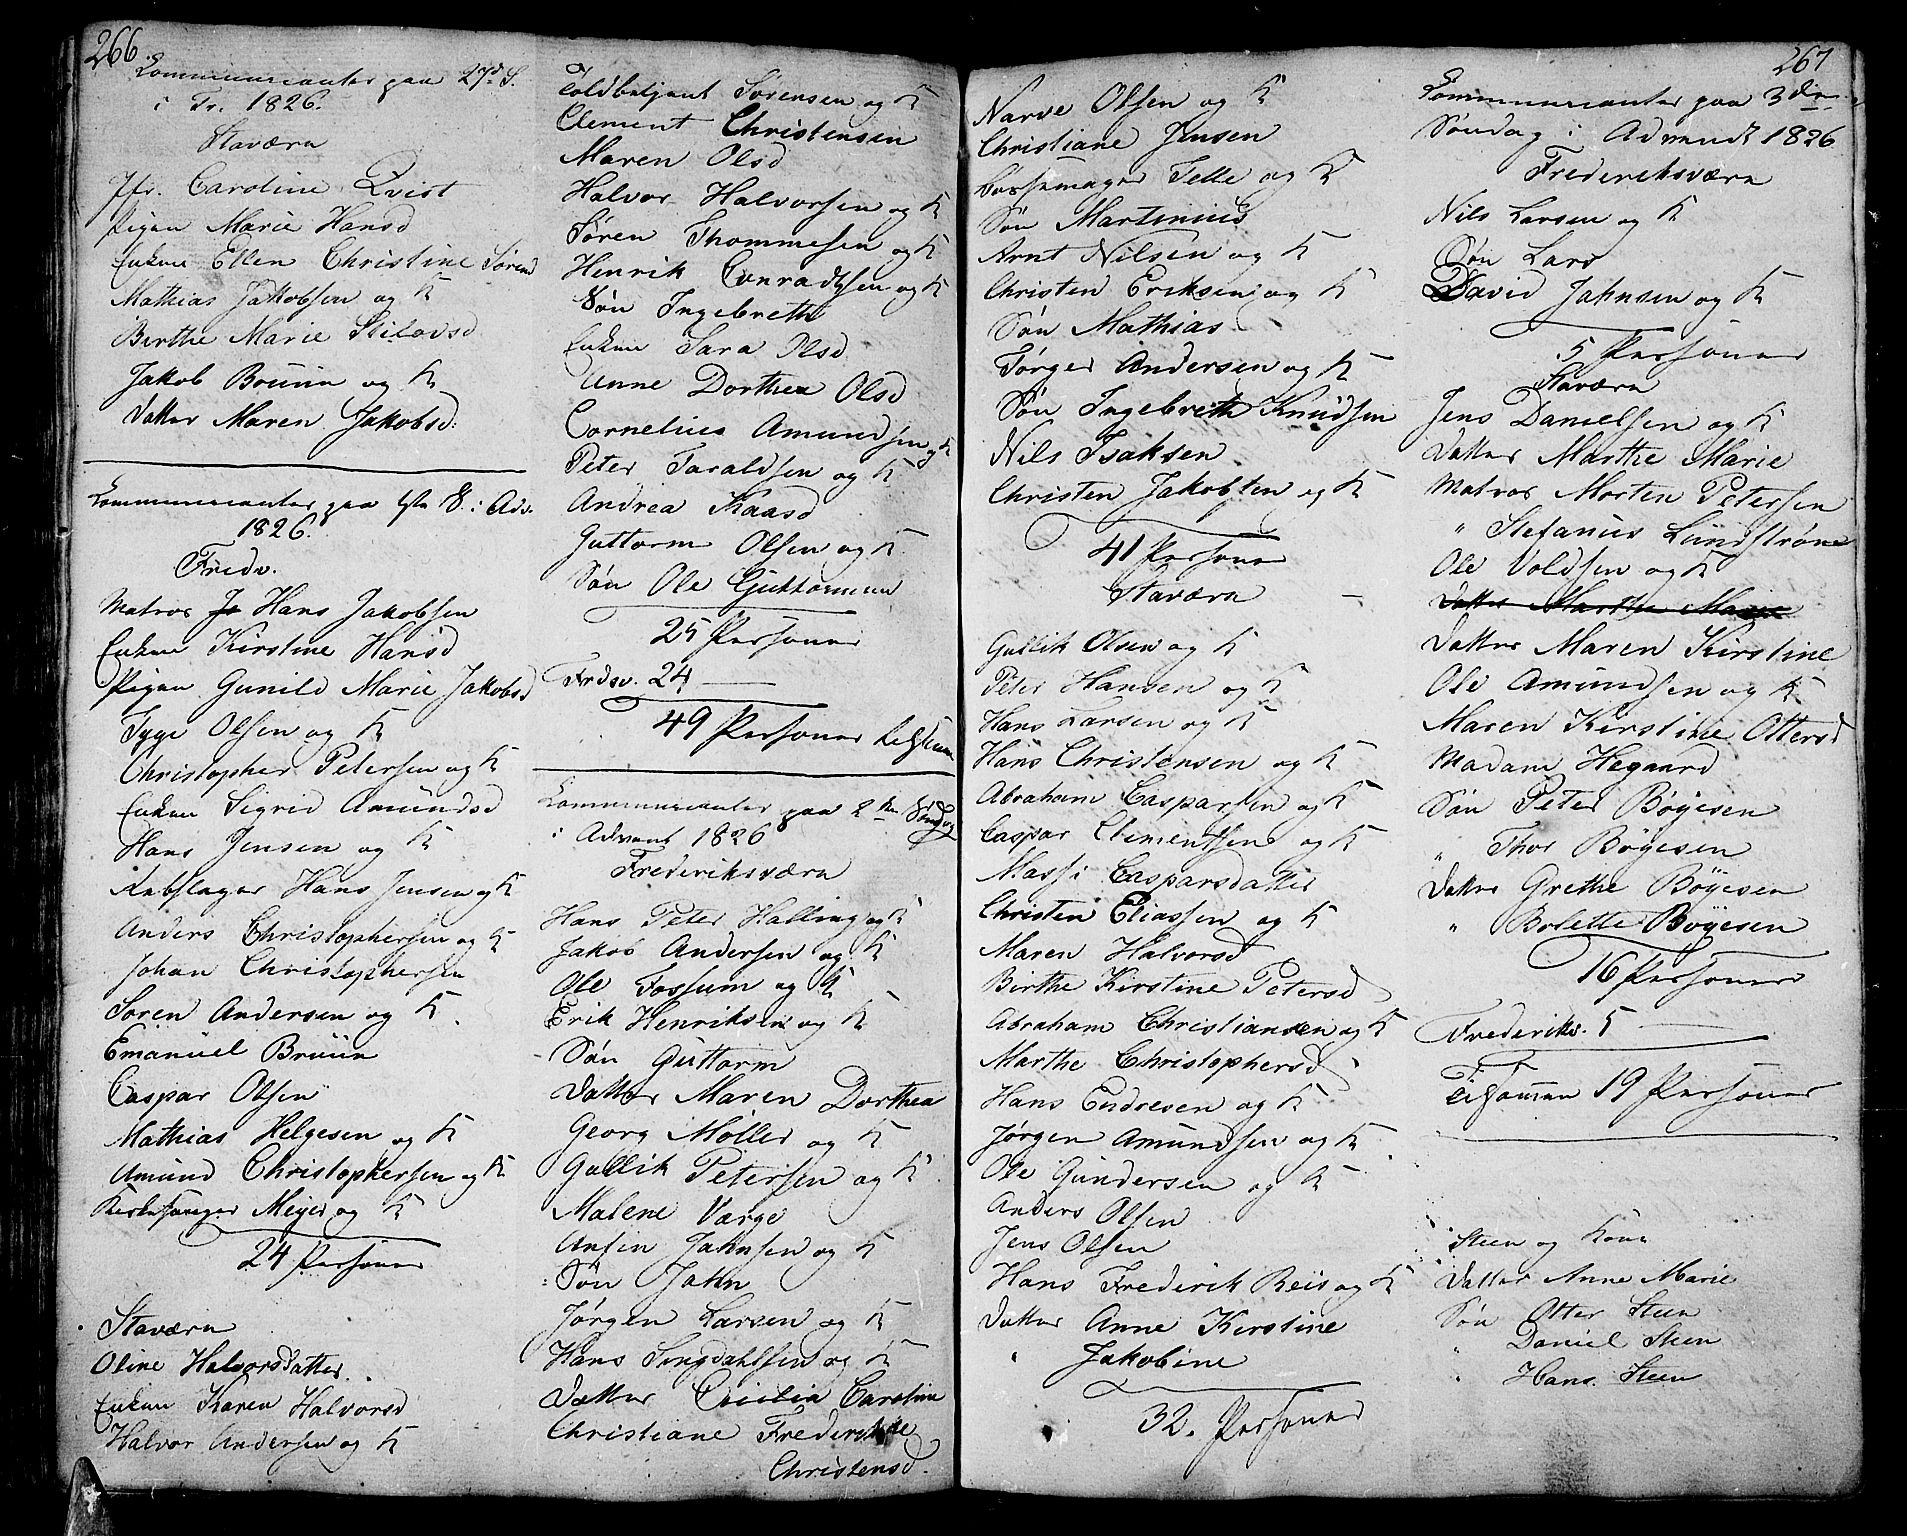 266
Communicanter paa 27de S.
i Tr. 1826.
Staværn
Jfr. Caroline Qvist
Pigen Marie Hansd
Enken Ellen Christine Sørend
Mathias Jakobsen og K
Berthe Marie
Jakob Bruun og K
Datter Maren Jakobsd:
Communicanter paa 1ste S. i Adv.
1826.
Fredv.
Matros Hans Jakobsen
Enken Kirstine Hansd
Pigen Gunild Marie Jakobsd
Tyge Olsen og K
Christopher Petersen og K
Enken Sigrid Amundsd
Hans Jensen og K
Rebslager Hans Jensen og K
Anders Christophersen og K
Johan Christophersen
Søren Andersen og K.
Emanuel Bruun
Caspar Olsen
Mathias Helgesen og K
Amund Christophersen og K
Meyer og K
24 Personer
Staværn
Oline Halvorsdatter.
Enken Karen Halvorsd
Halvor Andersen og K
Toldbetjent Sørensen og K
Clement Christensen
Maren Olsd
Halvor Halvorsen og K
Søren Thommesen og K
Henrik Conradsen og K
Søn Ingebreth
Enken Sara Olsd
Anne Dorthea Olsd
Cornelius Amundsen og K
Peter Taraldsen og K
Andrea Kaasd
Guttorm Olsen og K
Søn Ole Guttormsen
25 Personer
Fredv. 24
49 Personer tilsamen
Communicanter paa 2den Søndag
i Advent 1826
Frederiksværn
Hans Peter Halling og K
Jakob Andersen og K
Ole Fossum og K
Erik Henriksen og K
Søn Guttorm
Datter Maren Dorthea
Georg Møller og K
Gullik Petersen og K
Malene Varge
Anfin Jahnsen og K
Søn Jahn
Jørgen Larsen og K
Hans Singdahlsen og K
Datter Cicilia Caroline
Christiane Frederikke
Christensd.
267
Narve Olsen og K
Christiane Jensen
Bøssemager Telle og K
Søn Martinius
Arnt Nilsen og K
Christen Eriksen og K
Søn Mathias
Jørgen Andersen og K
Søn Ingebreth Knudsen
Nils Isaksen
Christen Jakobsen og K
41 Personer
Staværn
Gullik Olsen og K
Peter Hansen og K
Hans Larsen og K
Hans Christensen og K
Abraham Casparsen og K
Caspar Clementsen og K
Massi Casparsdatter
Christen Eliassen og K
Maren Halvorsd
Birthe Kirstine Petersd
Abraham Christiansen og K
Marthe Christophersd
Hans Endresen og K
Jørgen Amundsen og K
Ole Gundersen og K
Anders Olsen
Jens Olsen
Hans Frederik Reis og K
Datter Anne Kirstine
" Jakobine
32. Personer
Communicanter paa 3die
Søndag i Advendt 1826
Frederiksværn
Nils Larsen og K
Søn Lars
David Jahnsen og K
5 Personer
Staværn
Jens Danielsen og K
Datter Marthe Marie
Matros Morten Petersen
" Stefanius Lundstrøm
Ole Voldsen og K
Datter Marthe Marie
Datter Maren Kirstine
Ole Amundsen og K
Maren Kirstine Ottersd
Madam Hegaard
Søn Peter Bøyesen
" Thor Bøyesen
Datter Grethe Bøyesen
" Bolette Bøyesen
16 Personer
Frederiksv. 5
Tilsamen 19 Personer
Steen og Kone
Datter Anne Marie
Søn Otter Steen
" Daniel Steen
" Hans Steen